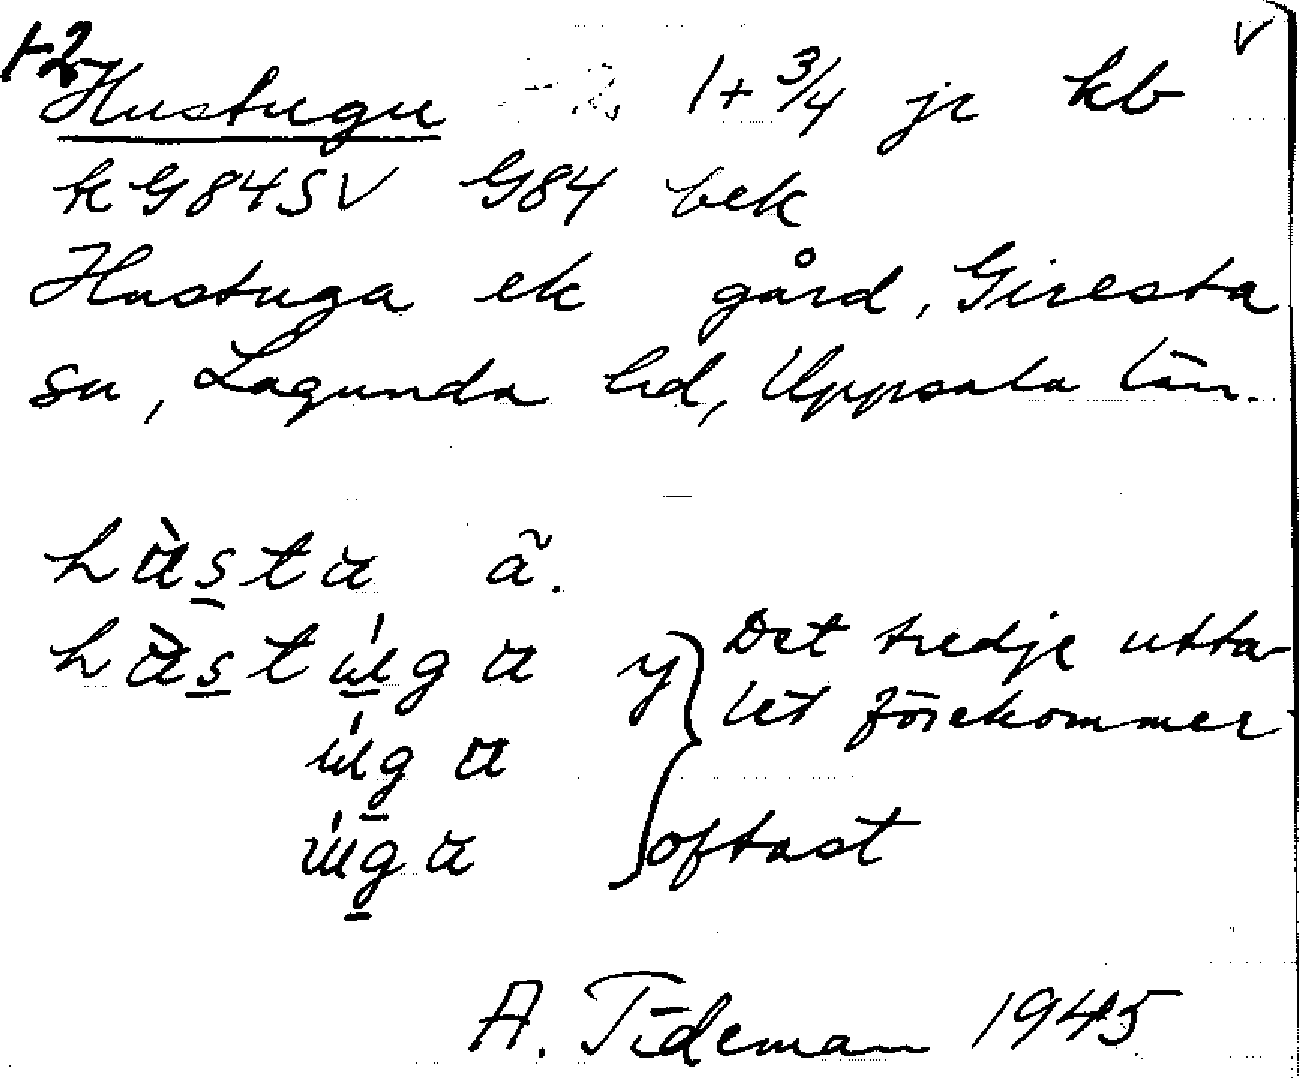 1-2 v
Hustugu -2. 1+3/4 jr kb
k G84SV G84 bek
Hustuga ek gård, Giresta
sn, Lagunda hd, Uppsala län.
hùstu ã.
hùstúgu y Det tredje utta-
úgu let förekommer
úgu oftast
A. Tideman 1945